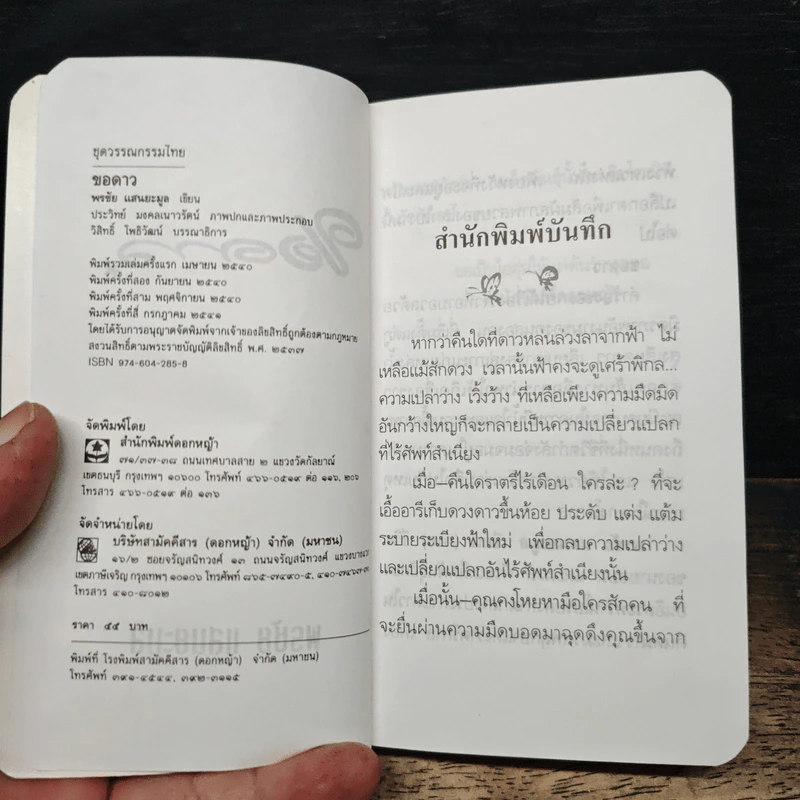 ชุดวรรณกรรมไทย
ขอดาว
พรชัย แสนยะมูล เขียน
ประวิทย์ มงคลเนาวรัตน์ ภาพปกและภาพประกอบ
วิสิทธิ์ โพธิวัฒน์ บรรณาธิการ
พิมพ์รวมเล่มครั้งแรก เมษายน ๒๕๔๐
พิมพ์ครั้งที่สอง กันยายน ๒๕๔๐
พิมพ์ครั้งที่สาม พฤศจิกายน ๒๕๔๐
พิมพ์ครั้งที่สี่ กรกฎาคม ๒๕๔๑
โดยได้รับการอนุญาตจัดพิมพ์จากเจ้าของลิขสิทธิ์ถูกต้องตามกฎหมาย
สงวนลิขสิทธิ์ตามพระราชบัญญัติลิขสิทธิ์ พ.ศ. ๒๕๓๗
ISBN 974-604-285-8
จัดพิมพ์โดย
สำนักพิมพ์ดอกหญ้า
๗๑/๓๗-๓๘ ถนนเทศบาลสาย ๒ แขวงวัดกัลยาณ์
เขตธนบุรี กรุงเทพฯ ๑๐๖๐๐ โทรศัพท์ ๔๖๖-๐๕๑๙ ต่อ ๑๑๖, ๒๐๖
โทรสาร ๔๖๖-๐๕๑๙ ต่อ ๑๓๖
จัดจำหน่ายโดย
บริษัทสามัคคีสาร (ดอกหญ้า) จำกัด (มหาชน)
๑๖/๒ ซอยจรัญสนิทวงศ์ ๑๓ ถนนจรัญสนิทวงศ์
เขตภาษีเจริญ กรุงเทพฯ ๑๐๑๖๐ โทรศัพท์ ๘๖๕-๗๔๙๐-๕,
โทรสาร ๔๑๐-๘๐๑๒
ราคา ๔๕ บาท
พิมพ์ที่ โรงพิมพ์สามัคคีสาร (ดอกหญ้า) จำกัด (มหาชน)
โทรศัพท์ ๓๙๑-๔๕๔๔, ๓๙๒-๓๑๑๕
สำนักพิมพ์บันทึก
หากว่าคืนใดที่ดาวหล่นล่วงลาจากฟ้า ไม่
เหลือแม้สักดวง เวลานั้นฟ้าคงจะดูเศร้าพิกล...
ความเปล่าว่าง เวิ้งว้าง ที่เหลือเพียงความมืดมิด
อันกว้างใหญ่ก็จะกลายเป็นความเปลี่ยวแปลก
ที่ไร้ศัพท์สำเนียง
เมื่อ—คืนใดราตรีไร้เดือน ใครล่ะ ? ที่จะ
เอื้ออารีเก็บดวงดาวขึ้นห้อย ประดับ แต่ง แต้ม
ระบายระเบียงฟ้าใหม่ เพื่อกลบความเปล่าว่าง
และเปลี่ยวแปลกอันไร้ศัพท์สำเนียงนั้น
เมื่อนั้น—คุณคงโหยหามือใครสักคน ที่
จะยื่นผ่านความมืดบอดมาฉุดดึงคุณขึ้นจาก